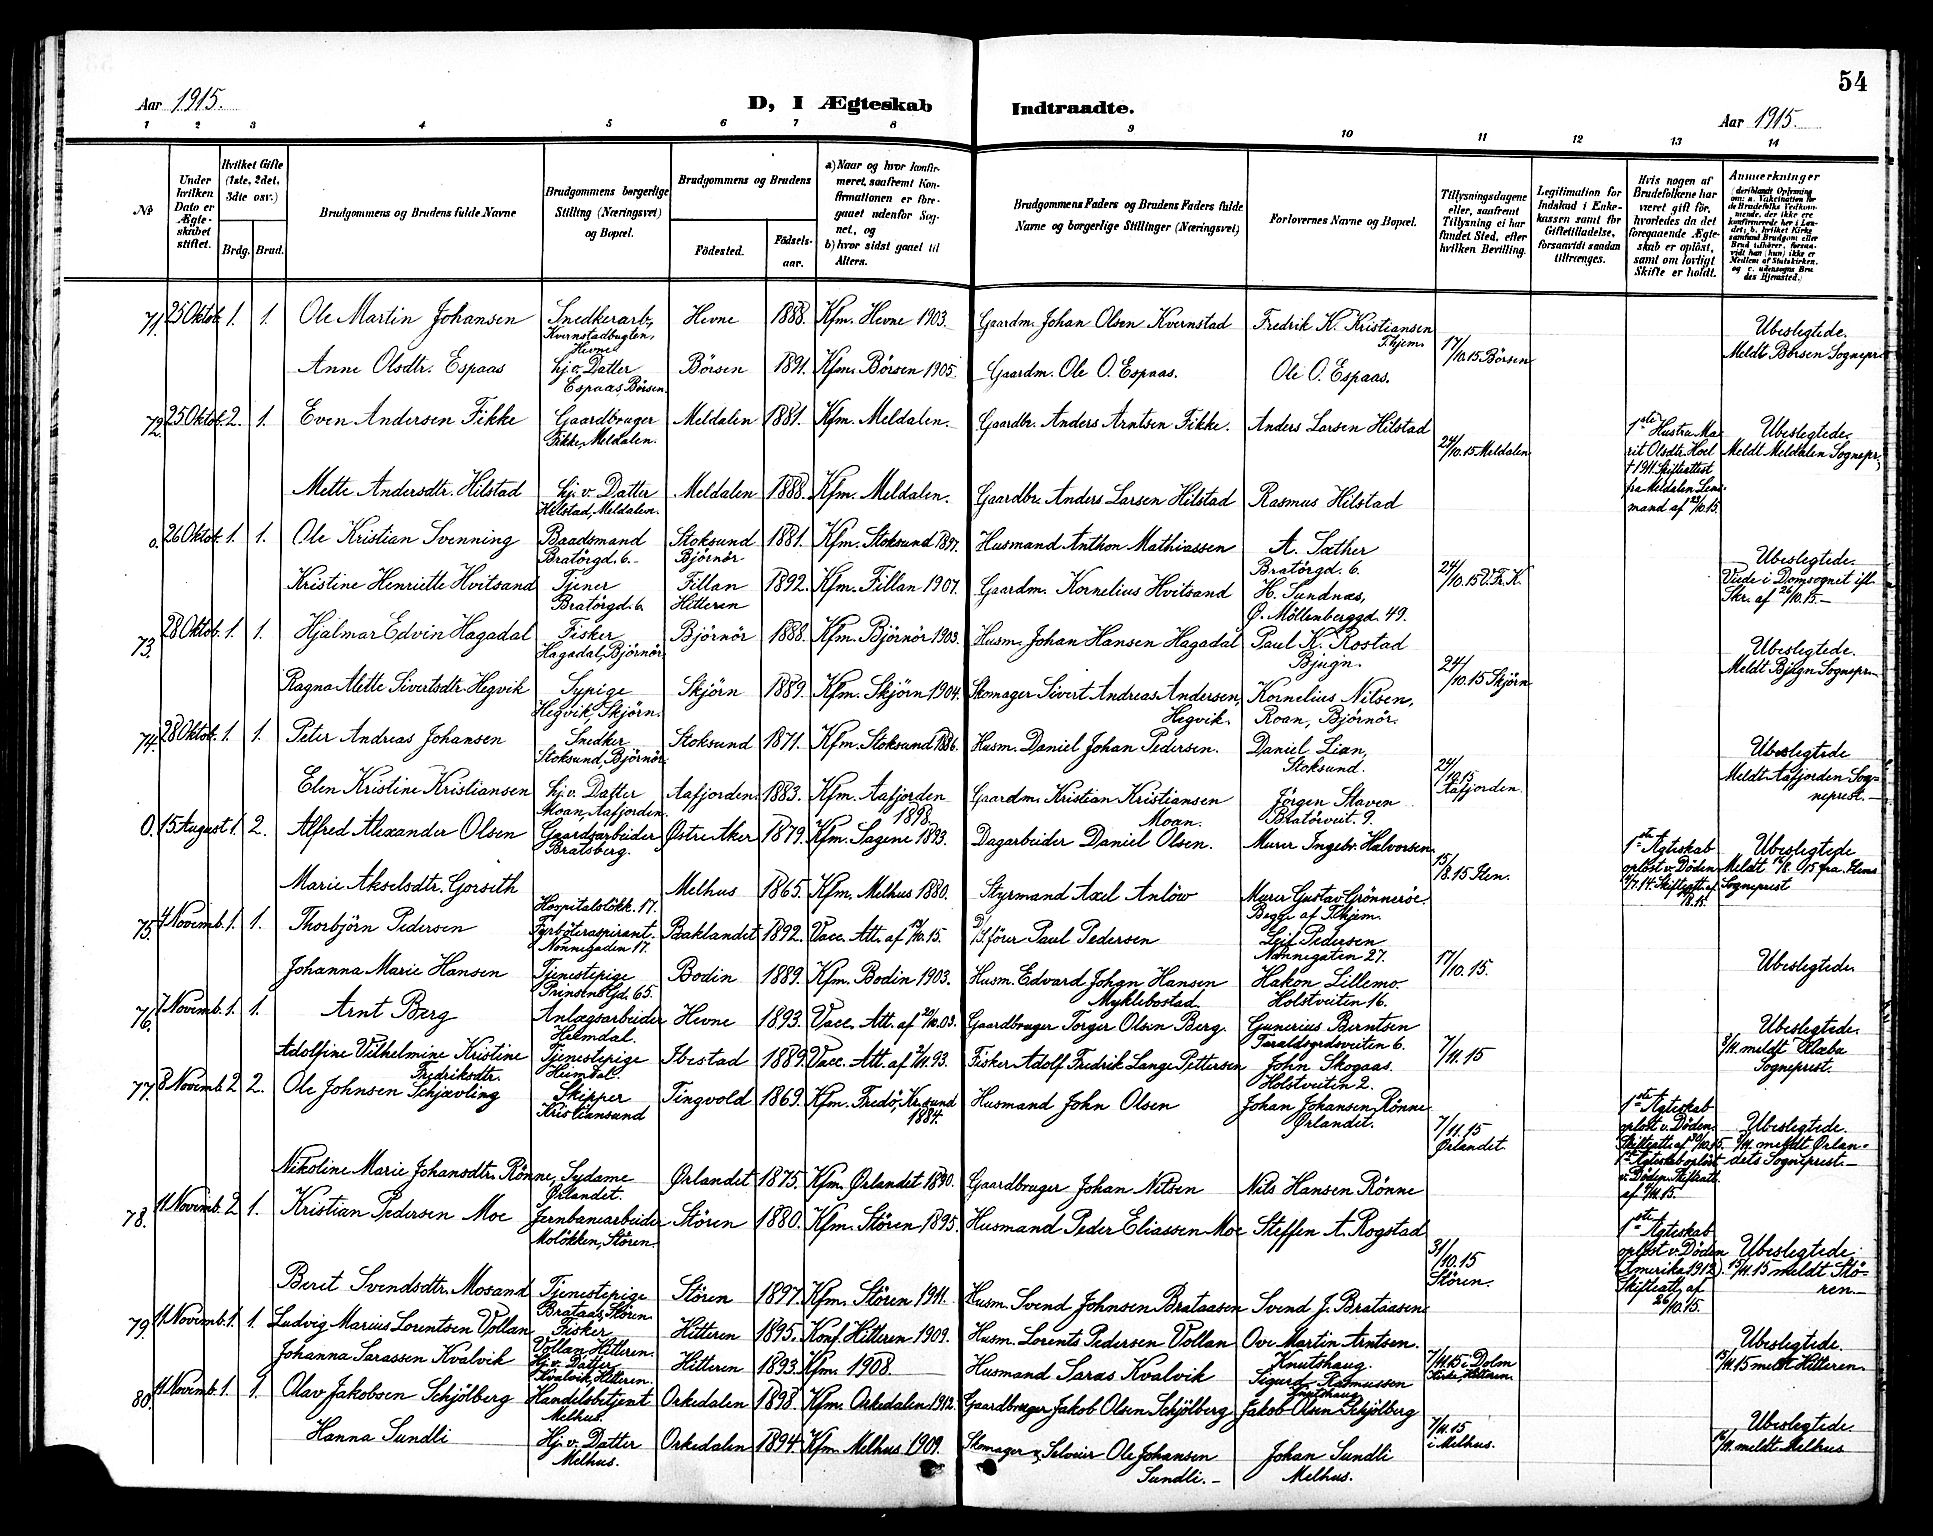 54
Aar 1915.
D, I Ægteskab Indtraadte.
Aar 1915.
1 2 3 4 5 6 7 8 9 10 11 12 13 14
№
Under hvilken Dato er Ægteskabet stiftet.
Hvilket Gifte (1ste, 2det, 3dte osv.)
Brdg. Brud.
Brudgommens og Brudens fulde Navne
Brudgommens borgerlige Stilling (Næringsvei) og Bopæl.
Brudgommens og Brudens
Födested. Födselsaar.
a) Naar og hvor konfirmeret, saafremt Konfirmationen er foregaaet udenfor Sognet, og
b) hvor sidst gaaet til Alters.
Brudgommens Faders og Brudens Faders fulde Navne og borgerlige Stillinger (Næringsvei)
Forlovernes Navne og Bopæl.
Tillysningsdagene eller, saafremt Tillysning ei har fundet Sted, efter hvilken Bevilling.
Legitimation for Indskud i Enkekassen samt for Giftetilladelse, forsaavidt saadan tiltrænges.
Hvis nogen af Brudefolkene har været gift för, hvorledes da det foregaaende Ægteskab er oplöst, samt om lovligt Skifte er holdt.
Anmerkninger
71. 25 Oktob. 1. 1. Ole Martin Johansen Snedkerarb, Kvernstadbugten, Hevne Hevne 1888. Kfm. Hevne 1903. Gaardm. Johan Olsen Kvernstad Fredrik K. Kristiansen Thjem. 17/10.15 Börsen Ubeslegtede. Meldt Börsen Sognepr.
Anne Olsdtr. Espaas hj. v. Datter Espaas, Börsen. Börsen 1891. Kfm. Börsen 1905. Gaardm. Ole O. Espaas. Ole O. Espaas.
72. 25 Oktob. 2. 1. Even Andersen Fikke Gaardbruger Fikke, Meldalen. Meldalen 1881. Kfm. Meldalen. Gaardbr. Anders Arntsen Fikke. Anders Larsen Hilstad 24/10.15 Meldalen 1ste Hustru Marit Olsdtr. Hoel † 1911. Skifteattest fra Meldalen Lensmand af 23/10.15. Ubeslegtede. Meldt Meldalen Sognepr.
Mette Andersdtr. Hilstad hj. v. Datter Hilstad, Meldalen. Meldalen 1888. Kfm. Meldalen. Gaardbr. Anders Larsen Hilstad Rasmus Hilstad
0. 26 Oktob. 1. 1. Ole Kristian Svenning Baadsmand Bratörgd. 6. Stoksund Björnör 1881. Kfm. Stoksund 1897. Husmand Anthon Mathiassen A. Sæther Bratörgd. 6. 24/10.15 V. Fr. K. Ubeslegtede. Viede i Domsognet ifl. Skr. af 26/10.15.
Kristine Henriette Hvitsand Tjener Bratörgd. 6. Fillan Hitteren 1892. Kfm. Fillan 1907. Gaardm. Kornelius Hvitsand H. Sundnæs, Ø. Möllenberggd. 49.
73. 28 Oktob. 1. 1. Hjalmar Edvin Hagadal Fisker Hagadal, Björnör Björnör 1888. Kfm. Björnör 1903. Husm. Johan Hansen Hagadal Paul K. Rostad Bjugn. 24/10.15 Skjörn Ubeslegtede. Meldt Bjugn Sognepr.
Ragna Mette Sivertsdtr. Hegvik Sypige Hegvik, Skjörn. Skjörn 1889. Kfm. Skjörn 1904. Skomager Sivert Andreas Andersen, Hegvik. Kornelius Nilsen, Roan, Björnör.
74. 28 Oktob. 1. 1. Peter Andreas Johansen Snedker Stoksund, Björnör. Stoksund 1871. Kfm. Stoksund 1886. Husm. Daniel Johan Pedersen. Daniel Lian, Stoksund. 24/10.15 Aafjorden. Ubeslegtede Meldt Aafjorden Sogneprest.
Elen Kristine Kristiansen hj. v. Datter Moan, Aafjorden. Aafjorden 1883. Kfm. Aafjorden 1898. Gaardm. Kristian Kristiansen Moan. Jörgen Staven Bratörveit. 9.
0. 15 August 1. 2. Alfred Alexander Olsen Gaardsarbeider Bratsberg. Østre Aker 1879. Kfm. Sagene 1893. Dagarbeider Daniel Olsen. Murer Ingebr. Halvorsen. 15/8.15 Ilen. 1ste Ægteskab oplöst v. Döden Ubeslegtede Meldt fra Ilens Sogneprest
Marie Akselsdtr. Gorseth Hospitalslökk. 17. Melhus 1865. Kfm. Melhus 1880. Styrmand Axel Anlöw Murer Gustav Grönneröe. Begge af Thjem.
75. 4 Novemb. 1. 1. Thorbjörn Pedersen Fyrböteraspirant. Nonnegaden 17. Baklandet 1892. Vacc. Att. af /10.15. förer Paul Pedersen Leif Pedersen Nonnegaten 27. 17/10.15. Ubeslegtede.
Johanna Marie Hansen Tjenestepige Prinsens Gd. 65. Bodin 1889. Kfm. Bodin 1903. Husm. Edvard Johan Hansen Myklebostad. Hakon Lillemo Holstveiten 16.
76. 7 Novemb. 1. 1. Arnt Berg Anlægsarbeider Heimdal. Hevne 1893. Vacc. Att. af 20/10.03. Gaardbruger Torger Olsen Berg. Gunerius Berntsen Taraldsgrdsveiten 6. 7/11.15 Ubeslegtede. 9/11. meldt Klæbu Sogneprest.
Adolfine Vilhelmine Kristine Fredriksdtr. Tjenestepige Heimdal. Ibestad 1889. Vacc. Att. af 2/11 93. Fisker Adolf Fredrik Lange Pettersen John Skogaas. Holstveiten 2.
77. 8 Novemb. 2 2. Ole Johnsen Schjævling Skipper Kristiansund Tingvold 1869. Kfm. Fredö, Kr.sund 1884. Husmand John Olsen Johan Johansen Rönne Ørlandet. 7/11.15 Ørlandet. 1ste Ægteskab oplöst v. Döden. Skifteatt. af 30/10.15. 1ste Ægteskab oplöst v. Döden. Skifteatt. af 6/11.15. Ubeslegtede. 9/11. meldt Ørlandets Sogneprest.
Nikoline Marie Johansdtr. Rönne, Sydame Ørlandet. Ørlandet 1875. Kfm. Ørlandet 1890. Gaardbruger Johan Nilsen Nils Hansen Rönne
78. 11 Novemb. 2 1. Kristian Pedersen Moe Jernbanearbeider Molökken, Stören. Stören 1880. Kfm. Stören 1895. Husmand Peder Eliassen Moe Steffen A. Rogstad 31/10.15 Stören. 1ste Ægteskab oplöst v. Döden (Amerika 1912). Skifteatt. af 26/10.15. Ubeslegtede. 15/11.15 meldt Stören.
Beret Svendsdtr. Mosand Tjenestepige Brataas, Stören. Stören 1897. Kfm. Stören 1911. Husm. Svend Johnsen Brataasen Svend J. Brataasen
79. 11 Novemb. 1. 1. Ludvig Marius Lorentsen Vollan Fisker Vollan Hitteren. Hitteren 1895. Konf. Hitteren 1909. Husm. Lorents Pedersen Vollan Ove Martin Arntsen. Knutshaug. 7/11.15 i Dolm Kirke, Hitteren. Ubeslegtede. 15/11.15 meldt Hitteren.
Johanna Sarassen Kvalvik Hj. v. Datter Kvalvik, Hitteren. Hitteren 1893. Kfm. 1908. Husmand Saras Kvalvik Sigurd Rasmussen Knutshaug
80. 11 Novemb. 1. 1. Olav Jakobsen Schjölberg Handelsbetjent Melhus. Orkedalen 1898. Kfm. Orkedalen 1912. Gaardbruger Jakob Olsen Schjölberg Jakob Olsen Schjölberg 7/11.15 i Melhus. Ubeslegtede. 12/11. meldt Melhus
Hanna Sundli Hj. v. Datter Melhus. Orkedalen 1894. Kfm. Melhus 1909. Skomager & Selveier Ole Johansen Sundli. Johan Sundli Melhus.